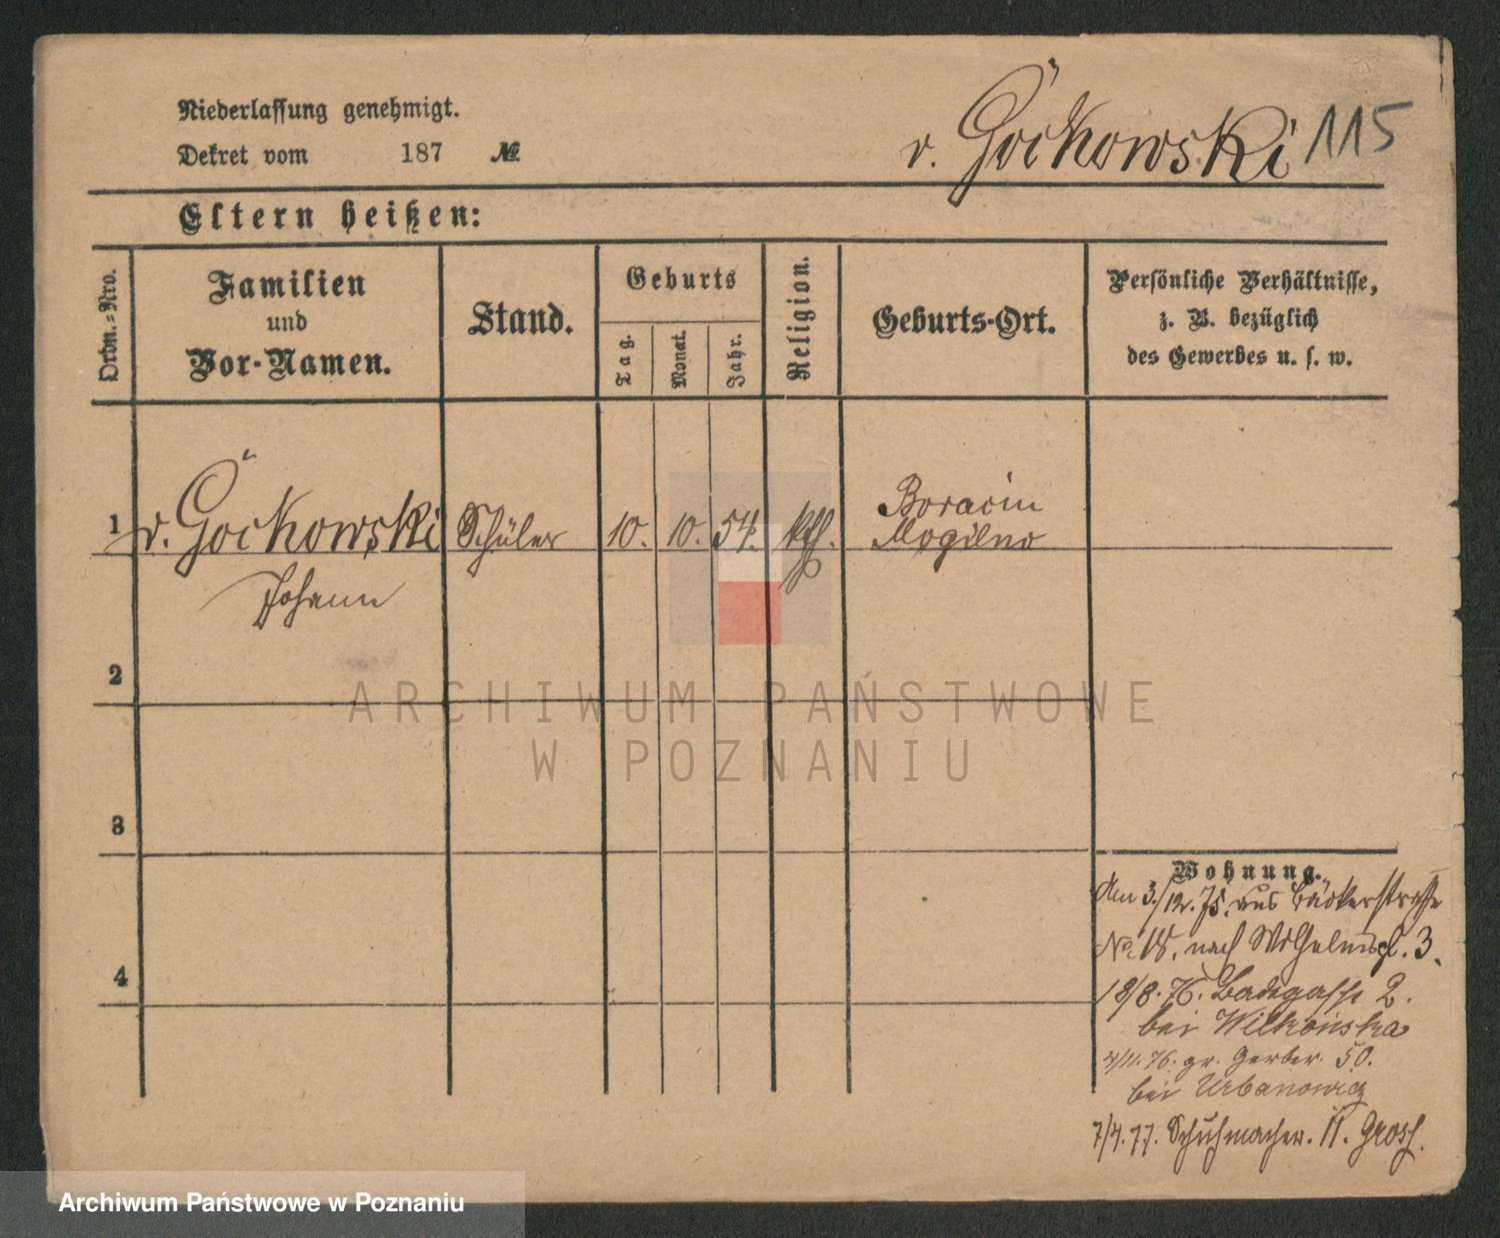 Niederlassung genehmigt.
Dekret vom 187 №
v. Göckowski 115
Eltern heißen:
Ordn.-Nro.
Familien
und
Vor-Namen.
Stand.
Geburts
Tag.
Monat.
Jahr.
Religion.
Geburts-Ort.
Persönliche Verhältnisse,
z. B. bezüglich
des Gewerbes u. s. w.
1 v. Göckowski Schüler 10. 10. 54. kth. Boracin
Mogilno
Johann
2
3
4
Wohnung.
Am 3./12. 75. aus Bäckerstraße
No. 18, nach Wilhelmspl. 3.
18/8. 76. Badegasse 2.
bei Wilkońska
4/11. 76. gr. Gerber. 50.
bei Urbanowicz
7/4. 77. Schuhmacher. 11. Grosch.
ARCHIWUM PAŃSTWOWE
W POZNANIU
Archiwum Państwowe w Poznaniu